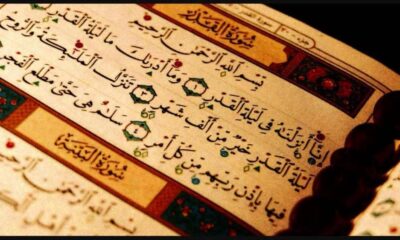 سُورَةُ الْقَدْرِ
بِسْمِ اللَّهِ الرَّحْمَنِ الرَّحِيمِ
إِنَّا أَنزَلْنَهُ فِى لَيْلَةِ الْقَدْرِ ۝١ وَمَا أَدْرَىكَ مَا لَيْلَةُ الْقَدْرِ
لَيْلَةُ الْقَدْرِ خَيْرٌ مِّنْ أَلْفِ شَهْرٍ ۝٣ تَنَزَّلُ الْمَلَئِكَةُ وَالرُّوحُ
فِيهَا بِإِذْنِ رَبِّهِم مِّن كُلِّ أَمْرٍ ۝٤ سَلَمٌ هِىَ حَتَّى مَطْلَعِ الْفَجْرِ
سُورَةُ الْبَيِّنَةِ
بِسْمِ اللَّهِ الرَّحْمَنِ الرَّحِيمِ